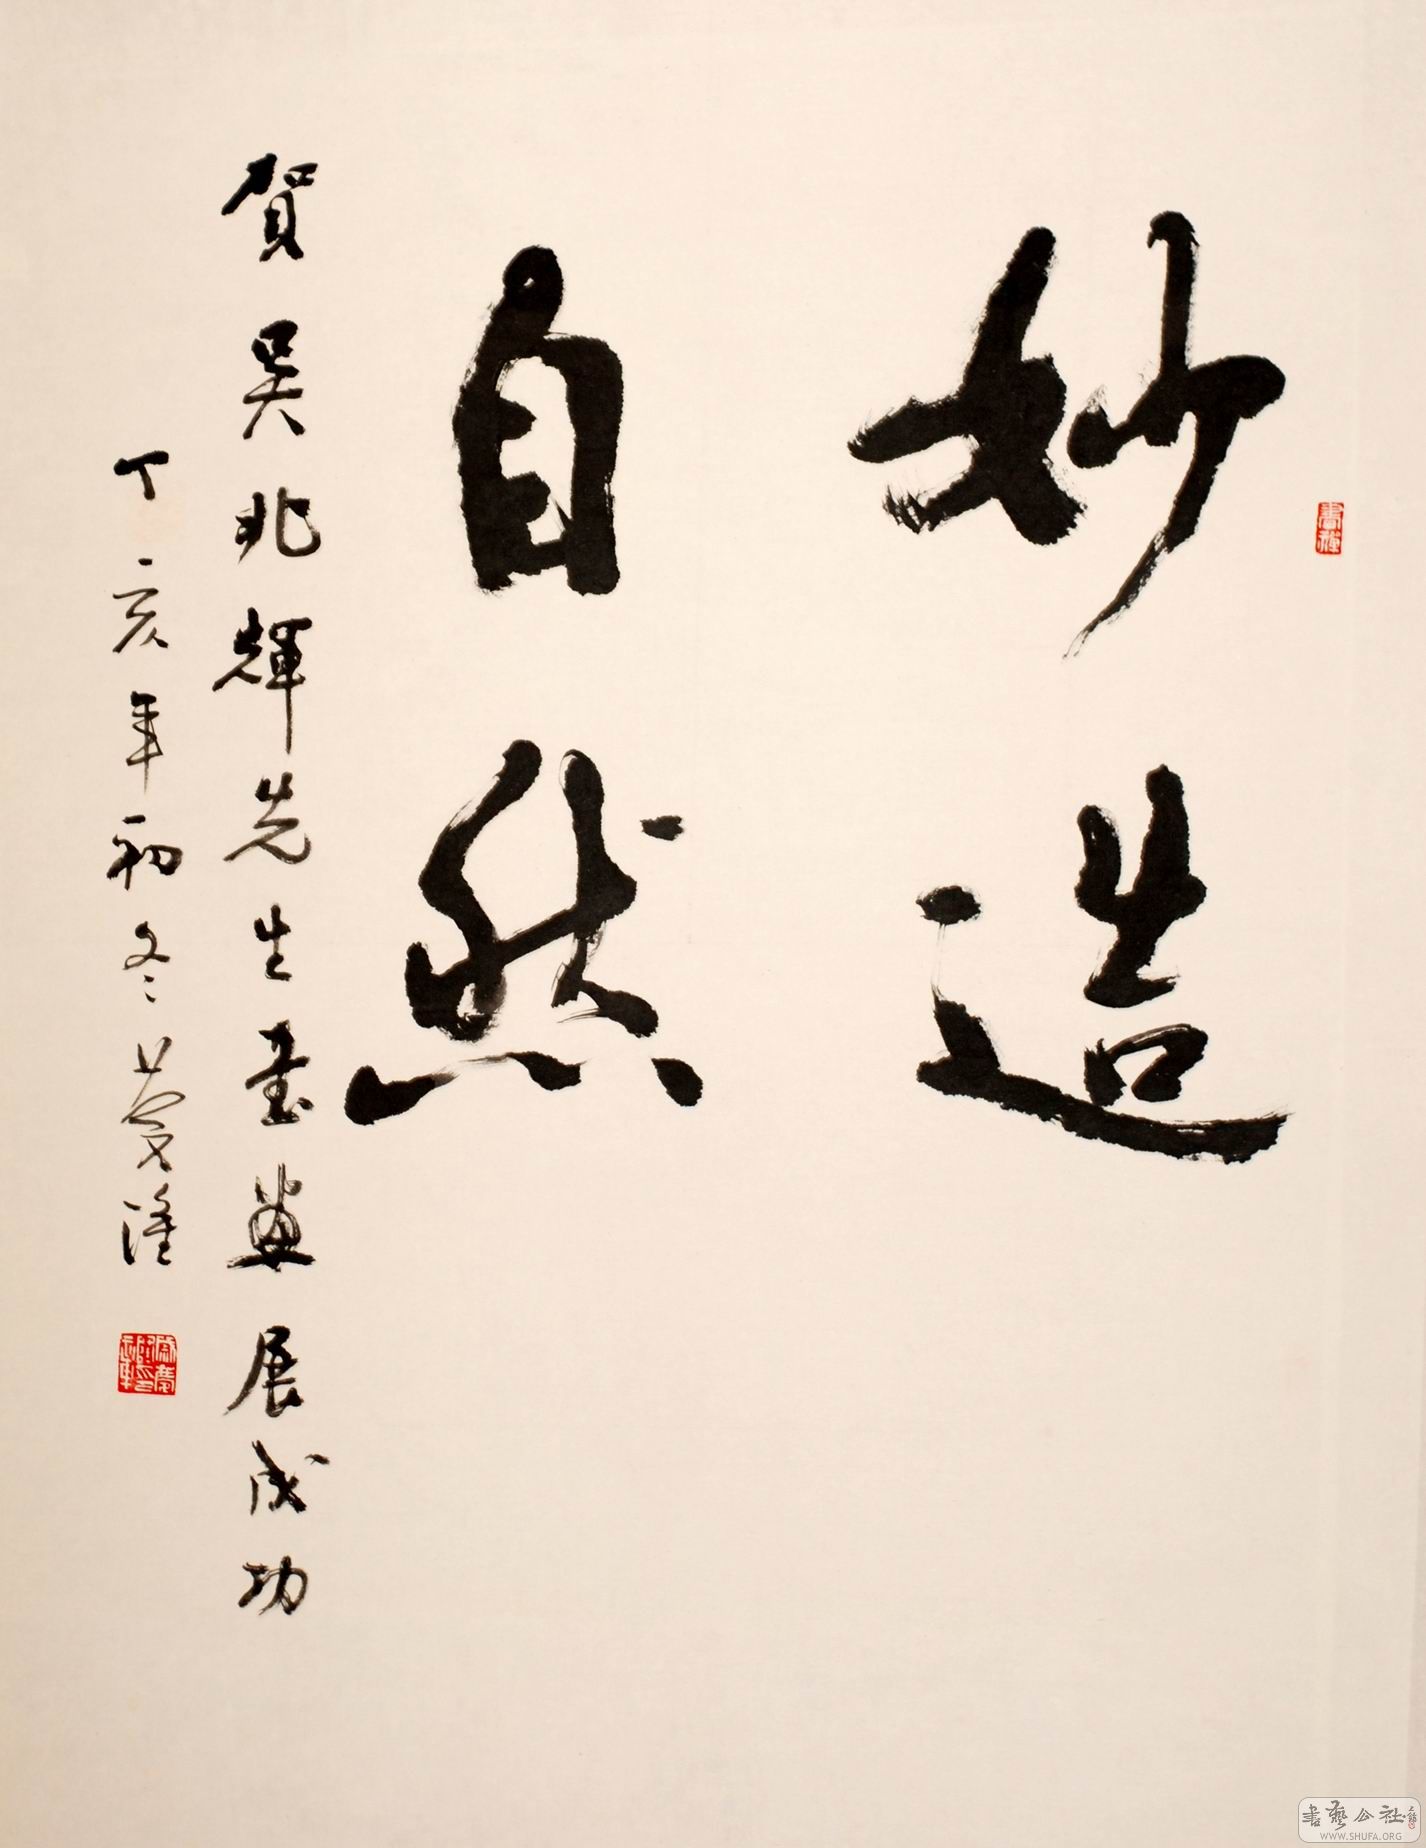 妙造
自然
賀吴兆輝先生書畫展成功
丁亥年初冬慶隆
書藝公社
WWW.SHUFA.ORG